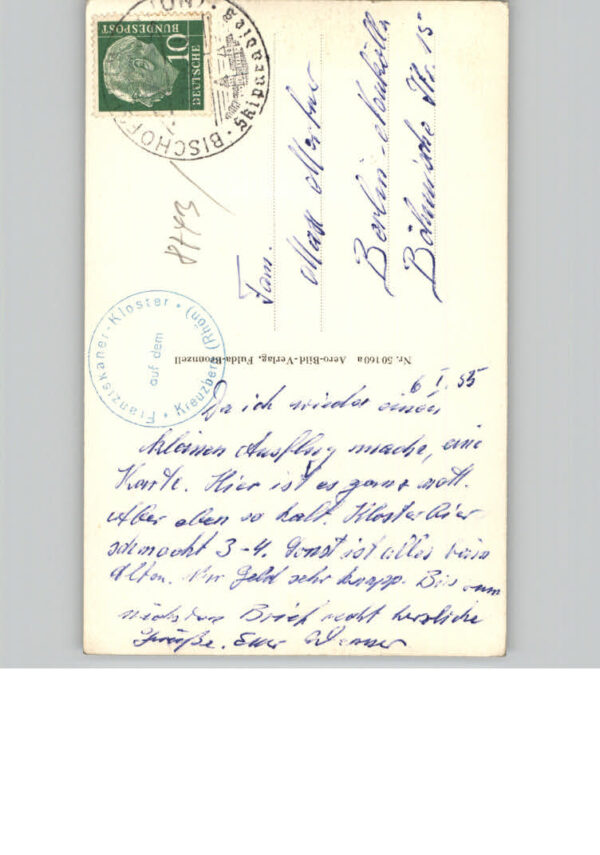 DEUTSCHE
BUNDESPOST
10
BISCHOF
Skiparadies
8443
Fam.
Max
Berlin-Neukölln
Böhmische Str. 15
Franziskaner-Kloster • Kreuzberg (Rhön)
auf dem
Nr. 50160a Aero-Bild-Verlag, Fulda-Bronnzell
6 I. 55
Da ich wieder einen
kleinen Ausflug mache, eine
Karte. Hier ist es ganz nett.
Aber eben so kalt. Klosterbier
schmeckt 3-4. Sonst ist alles beim
Alten. Nur Geld sehr knapp. Bis zum
nächsten Brief recht herzliche
Grüße. Euer Werner